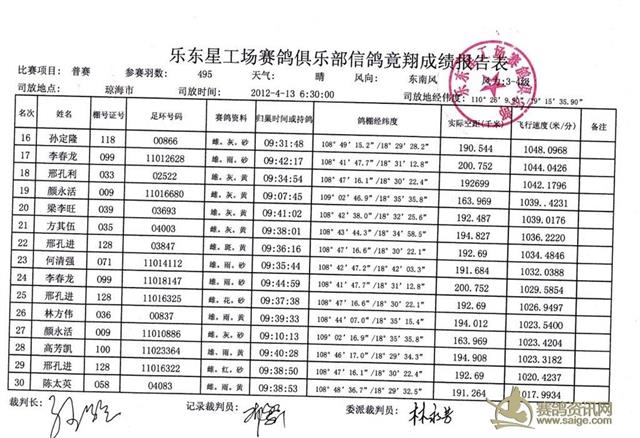 乐东星工场赛鸽俱乐部信鸽竞翔成绩报告表
比赛项目: 普赛 参赛羽数: 495 天气: 晴 风向: 东南风 风力:3-4级
司放地点: 琼海市 司放时间: 2012-4-13 6:30:00 司放地经纬度:
名次 姓名 棚号证号 足环号码 赛鸽资料 归巢时间或持鸽 鸽棚经纬度 实际空距(千米) 飞行速度(米/分) 备注
16 孙定隆 118 00866 雌，灰，砂 09:31:48 108° 49′ 15.2″/18° 29′ 28.2″ 190.544 1048.0968
17 李春龙 099 11012628 雄，雨，砂 09:42:17 108° 41′ 47.7″/18° 31′ 12.8″ 200.752 1044.0426
18 邢孔利 033 02522 雌，灰，黄 09:34:54 108° 47′ 16.1″/18° 30′ 22.4″ 192699 1042.1796
19 颜永活 009 11016680 雄，灰，黄 09:07:45 109° 02′ 46.9″/18° 35′ 35.8″ 163.969 1039..4231
20 梁李旺 039 03693 雄，灰，黄 09:41:02 108° 38′ 25.6″/18° 31′ 12.6″ 192.487 1039.0176
21 方其伍 035 04003 雌，灰，黄 09:38:01 108° 43′ 44.3″/18° 34′ 58.5″ 194.827 1036.2220
22 邢孔进 128 03847 雌，斑，黄 09:36:16 108° 47′ 16.6″/18° 30′ 22.1″ 192.69 1034.4846
23 何清强 071 11014112 雄，雨，砂 09:35:44 108° 42′ 47.2″/18° 42′ 03.3″ 191.684 1032.0388
24 李春龙 099 11018147 雄，雨，砂 09:44:59 108° 41′ 47.7″/18° 31′ 12.8″ 200.752 1029.5854
25 邢孔进 128 11016325 雌，花，砂 09:37:38 108° 47′ 16.6″/18° 30′ 22.1″ 192.69 1026.9497
26 林方伟 036 00837 雄，雨，黄 09:39:33 108° 44′ 07.0″/18° 35′ 15.4″ 194.012 1023.5400
27 颜永活 009 11010886 雌，灰，砂 09:10:13 109° 02′ 16.9″/18° 35′ 35.8″ 163.969 1023.4204
28 高芳凯 100 11023364 雄，雨，黄 09:40:28 108° 46′ 17.0″/18° 34′ 34.3″ 194.908 1023.3182
29 邢孔进 128 11016322 雌，红，砂 09:38:50 108° 47′ 16.6″/18° 30′ 22.1″ 192.69 1020.4237
30 陈太英 058 04083 雌，雨，黄 09:38:53 108° 48′ 36.7″/18° 29′ 32.5″ 191.264 1017.9934
裁判长: 记录裁判员: 委派裁判员:
赛鸽资讯网
www.saige.com